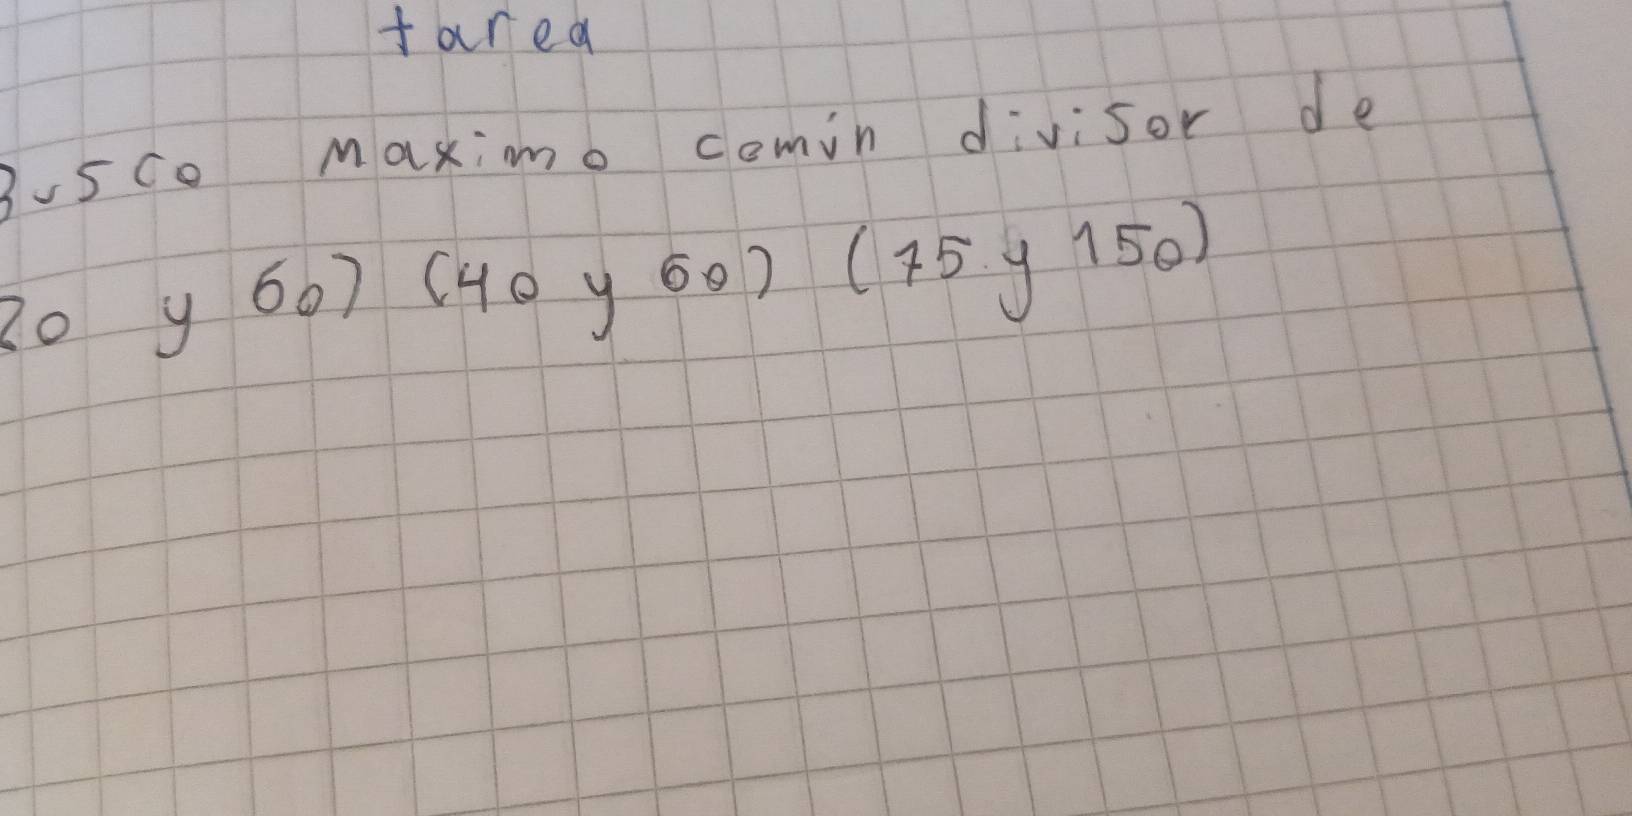 tarea
Busco Maximo comun divisor de
20 y 60) (40 y 60) (75 y 150)